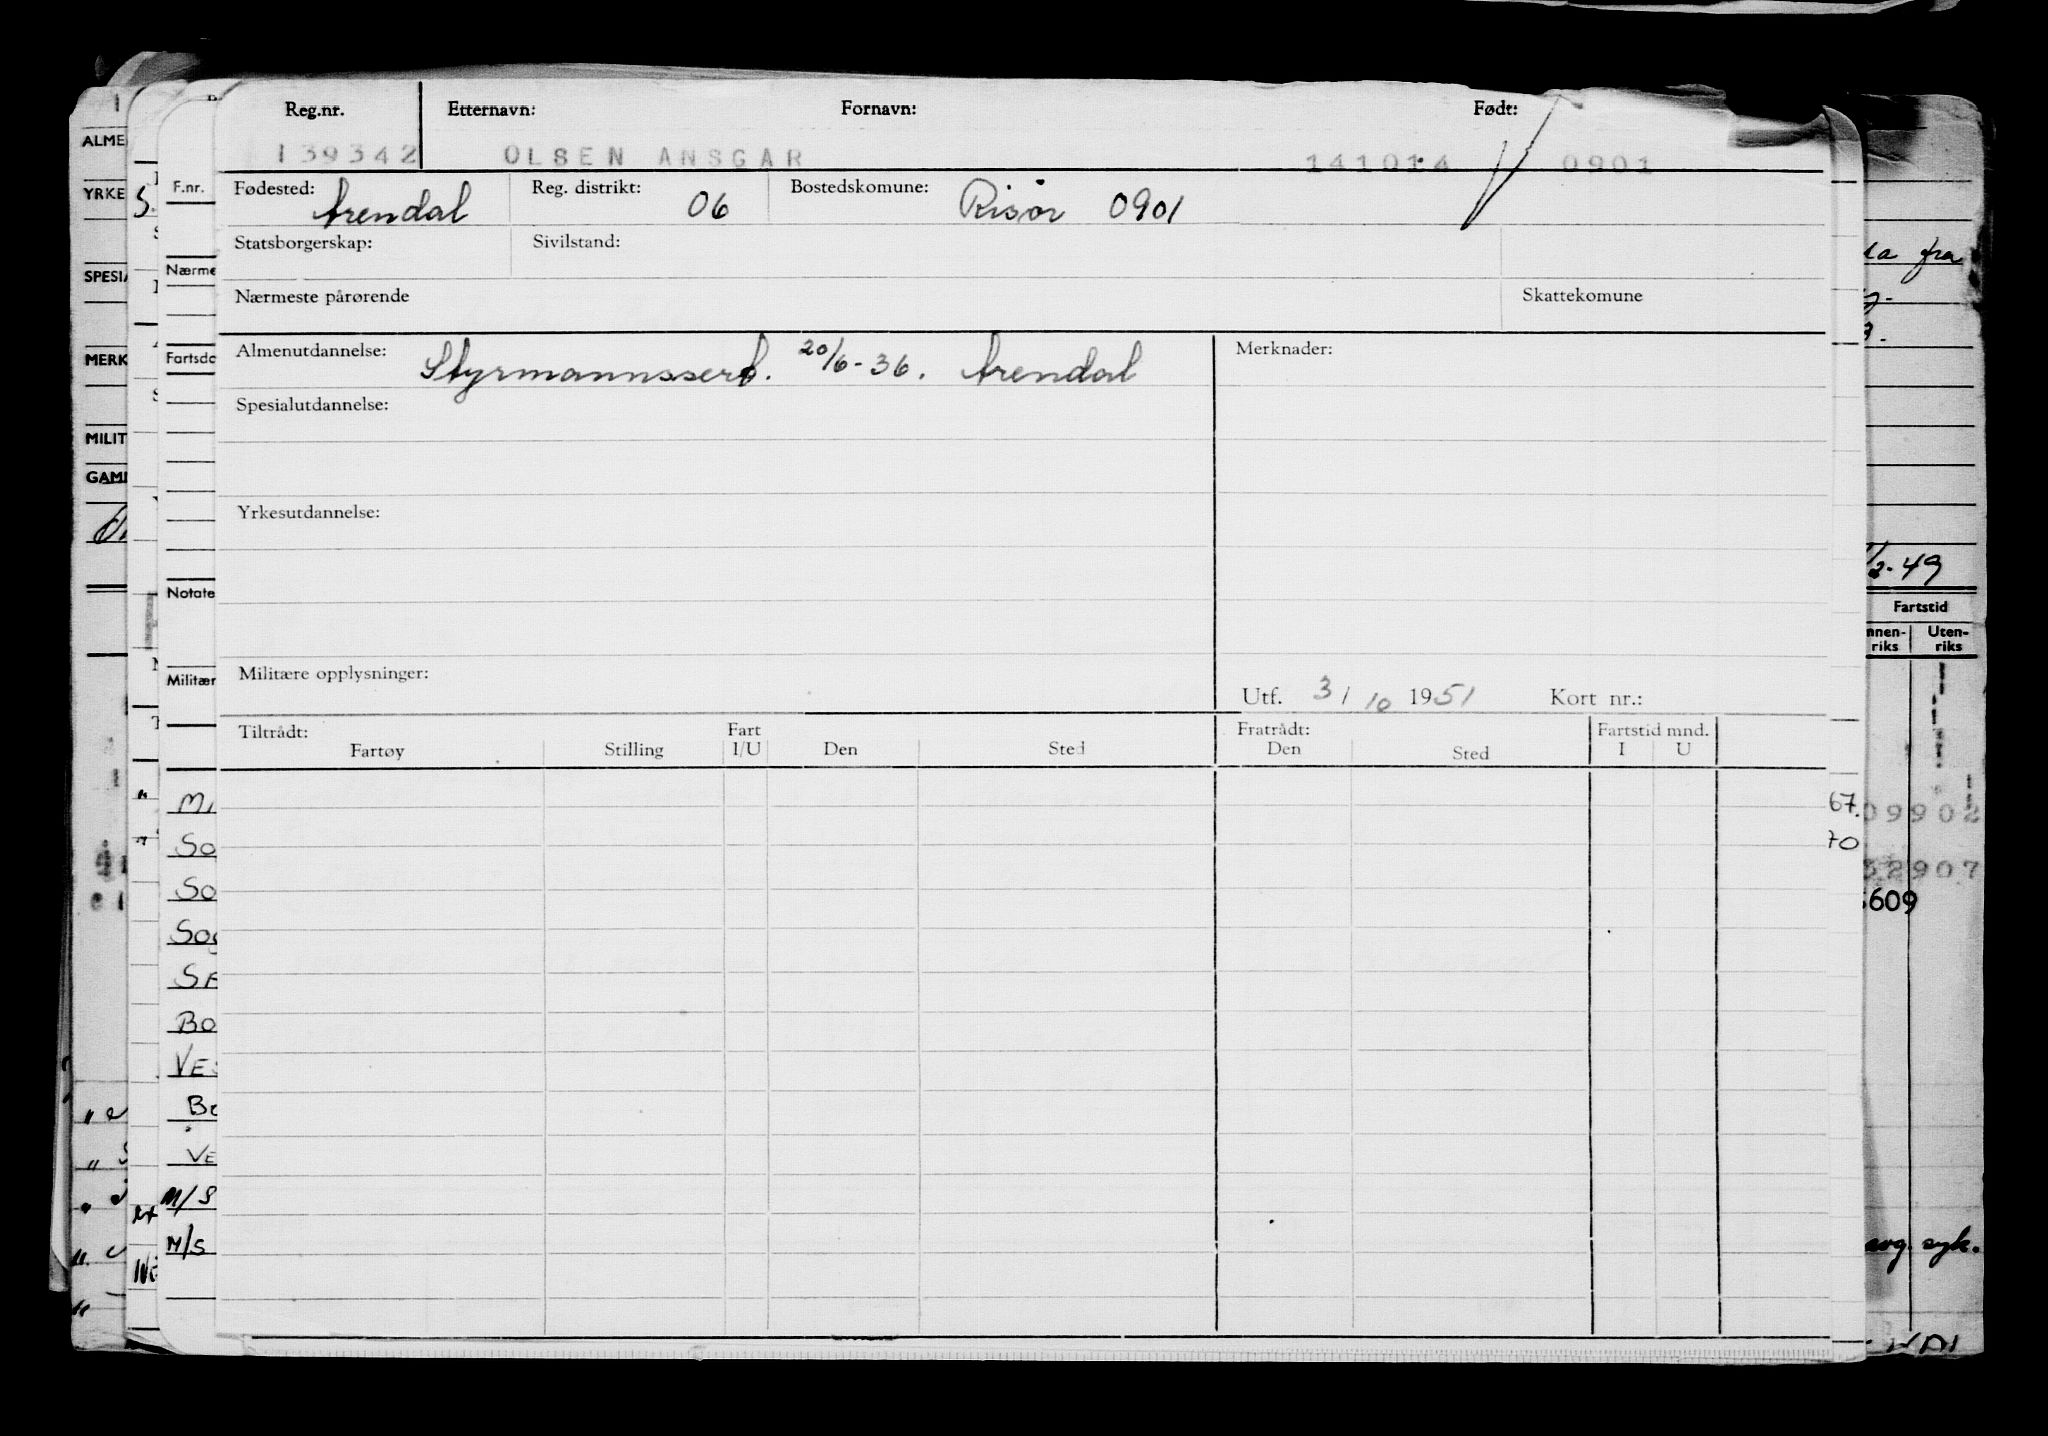 Reg.nr. Etternavn: Fornavn: Født:
139342 OLSEN ANSGAR 141014 0901
Fødested: Arendal Reg. distrikt: 06 Bostedskomune: Risør 0901
Statsborgerskap: Sivilstand:
Nærmeste pårørende Skattekomune
Almenutdannelse: Styrmannssert. 20/6-36. Arendal Merknader:
Spesialutdannelse:
Yrkesutdannelse:
Militære opplysninger:
Utf. 3/10 1951 Kort nr.:
Tiltrådt: Fart Fratrådt: Fartstid mnd.
Fartøy Stilling I/U Den Sted Den Sted I U
ALME
YRKE
SPESIA
MERK
MILIT
GAML
F.nr.
Nærme
Fartsdo
Notate
Militær
So
So
SO
BO
VE
M/S
M/S
fra
1/2-49
Fartstid
nnen-riks Uten-riks
67.
70
09902
32907
609
avg. syk.